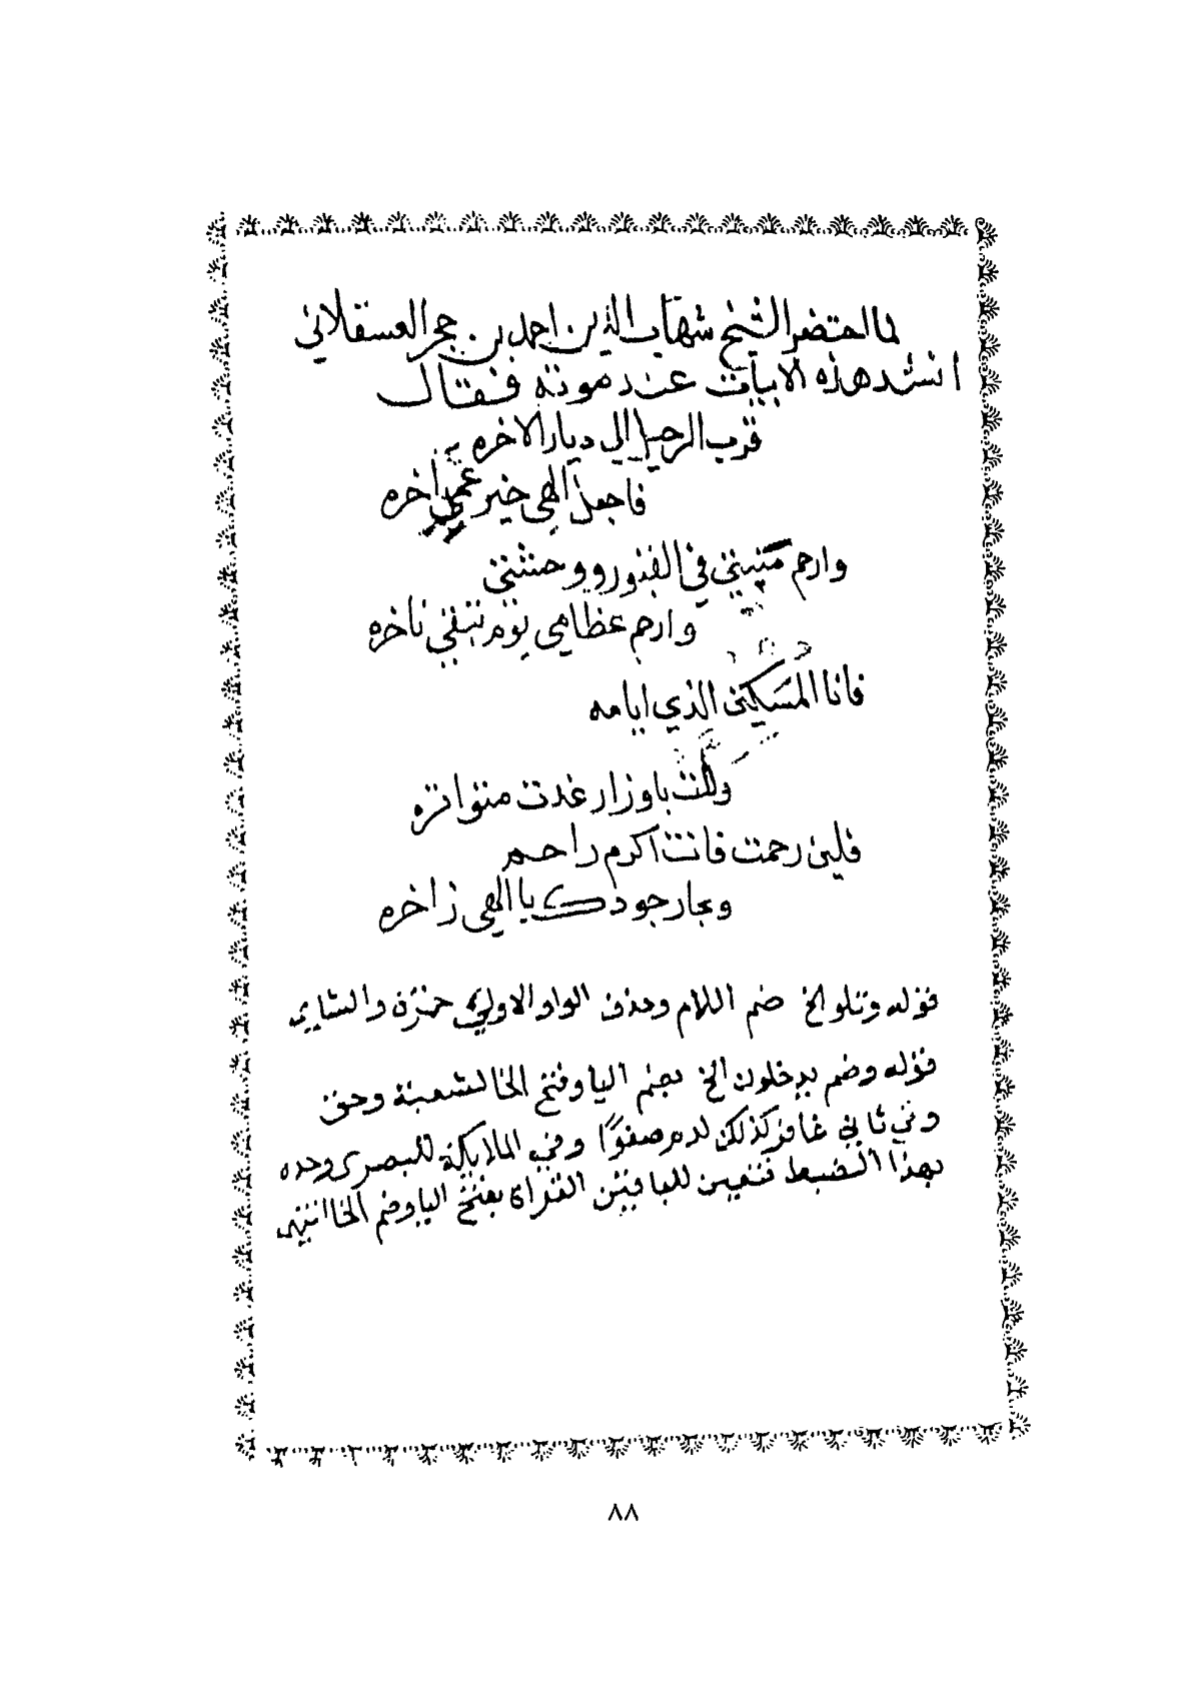 لما احتضر الشيخ شهاب الدين احمد بن حجر العسقلاني
انشد هذه الابيات عند موته فقال
قرب الرحيل الي ديار الاخره
فاجعل الهي خير عمري اخره
وارحم مبيتي في القبور ووحشتي
وارحم عظامي يوم تبقي ناخره
فانا المسكين الذي ايامه
ولت باوزار غدت متواتره
فلين رحمت فانت اكرم راحم
وبحار جودك يا الهي زاخره
قوله وتلو الخ ضم اللام وحذف الواو الاولي حمزة والشاي
قوله وضم يدخلون الخ بضم اليا وفتح الخا لشعبة وحق
وفي ثاني غافر كذلك لدم صفوا وفي الملايكة للبصري وحده
بهذا الضبط فتعين للباقين القراة بفتح اليا وضم الخا انتهي
٨٨